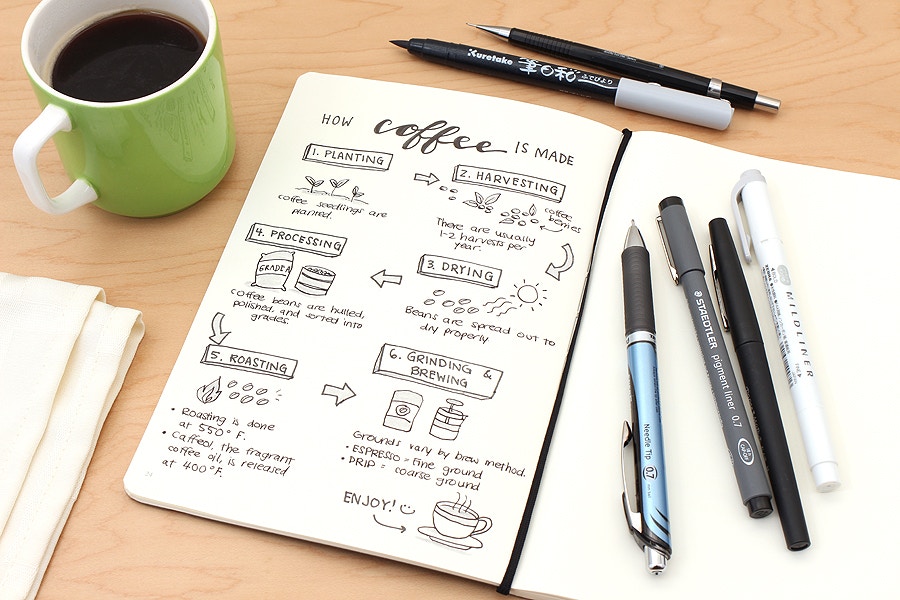 HOW coffee IS MADE
1. PLANTING
coffee seedlings are
planted.
2. HARVESTING
coffee
berries
There are usually
1-2 harvests per
year.
3. DRYING
Beans are spread out to
dry properly.
4. PROCESSING
GRADE A
Coffee beans are hulled,
polished, and sorted into
grades.
5. ROASTING
• Roasting is done
at 550° F.
• Caffeol, the fragrant
coffee oil, is released
at 400° F.
6. GRINDING &
BREWING
Grounds vary by brew method.
• ESPRESSO = fine ground
• DRIP = coarse ground
ENJOY!
Kuretake 筆日和 ふでびより
Needle Tip 0.7
STAEDTLER pigment liner 0.7
MILDLINER